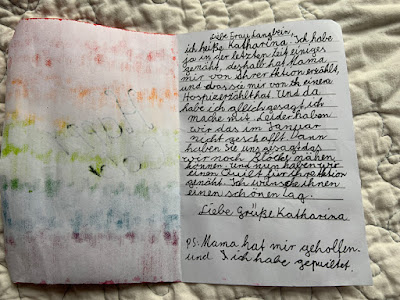 Liebe Frau Langbein,
ich heiße Katharina. Ich habe
ja in der letzten Zeit einiges
genäht, deshalb hat Mama
mir von Ihrer Aktion erzählt,
und dass sie mir von Ihrem
Hospiz erzählt hat. Und da
habe ich allich gesagt, ich
mache mit. Leider haben
wir das im Januar
nicht geschafft. Dann
haben Sie uns gesagt das
wir noch Blocks nähen
können. Und nun haben wir
einen Quilt für Ihre Aktion
genäht. Ich wünsche ihnen
einen schönen Tag.
Liebe Grüße Katharina
PS: Mama hat mir geholfen.
und Ich habe gequiltet.